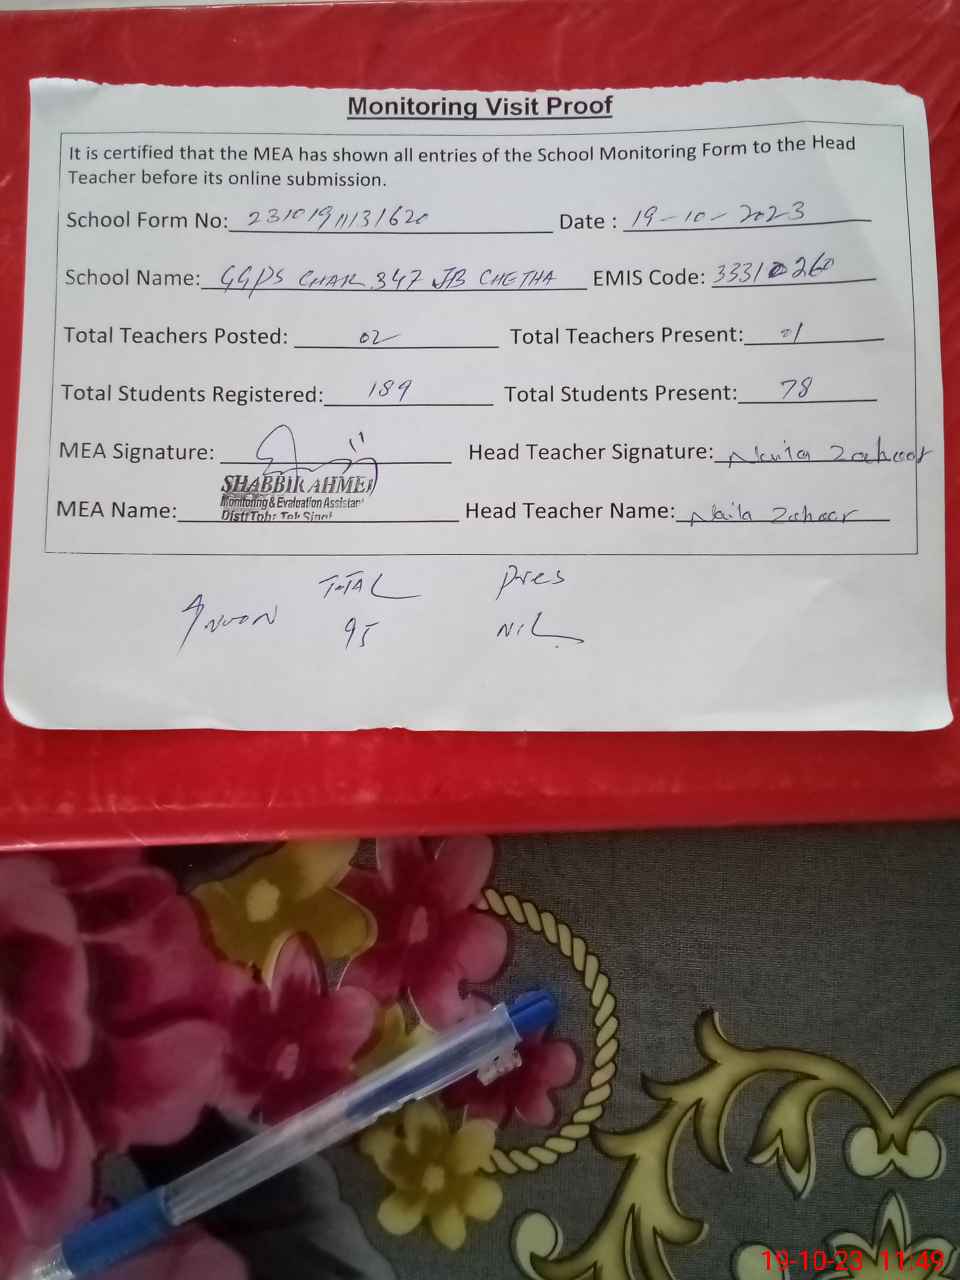 Monitoring Visit Proof
It is certified that the MEA has shown all entries of the School Monitoring Form to the Head
Teacher before its online submission.
School Form No: 23101911131620 Date : 19-10-2023
School Name: GGPS CHAK 347 JB CHETHA EMIS Code: 33310260
Total Teachers Posted: 02 Total Teachers Present: 01
Total Students Registered: 189 Total Students Present: 78
MEA Signature: Head Teacher Signature: Zahoor
SHABBIR AHMED
Monitoring & Evaluation Assistant
MEA Name: Distt Toba Tek Singh Head Teacher Name: Naila Zahoor
TOTAL Pres
Anoon 95 NIL
19-10-23 11:49